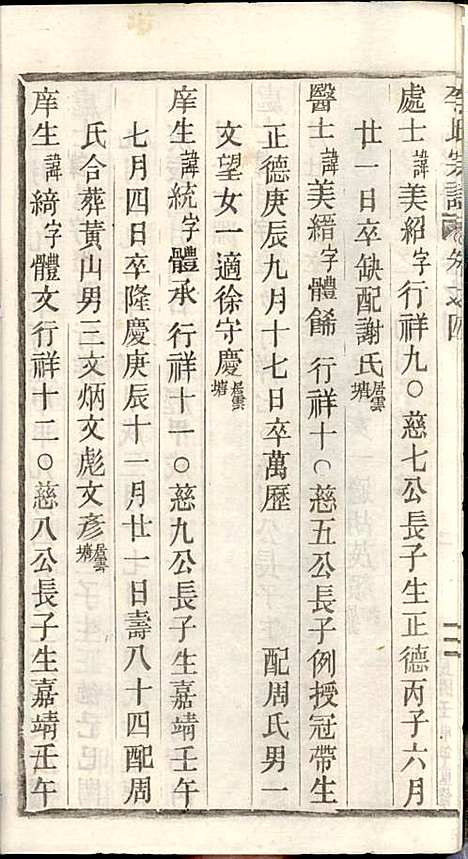 李氏宗譜
處士諱美紹字行祥九○慈七公長子生正德丙子六月
廿一日卒缺配謝氏居雲塘
醫士諱美縉字體餙行祥十○慈五公長子例授冠帶生
正德庚辰九月十七日卒萬歷 配周氏男一
文望女一適徐守慶居雲塘
庠生諱統字體承行祥十一○慈九公長子生嘉靖壬午
七月四日卒隆慶庚辰十一月廿一日壽八十四配周
氏合葬黃山男三文炳文彪文彥居雲塘
庠生諱綺字體文行祥十二○慈八公長子生嘉靖壬午